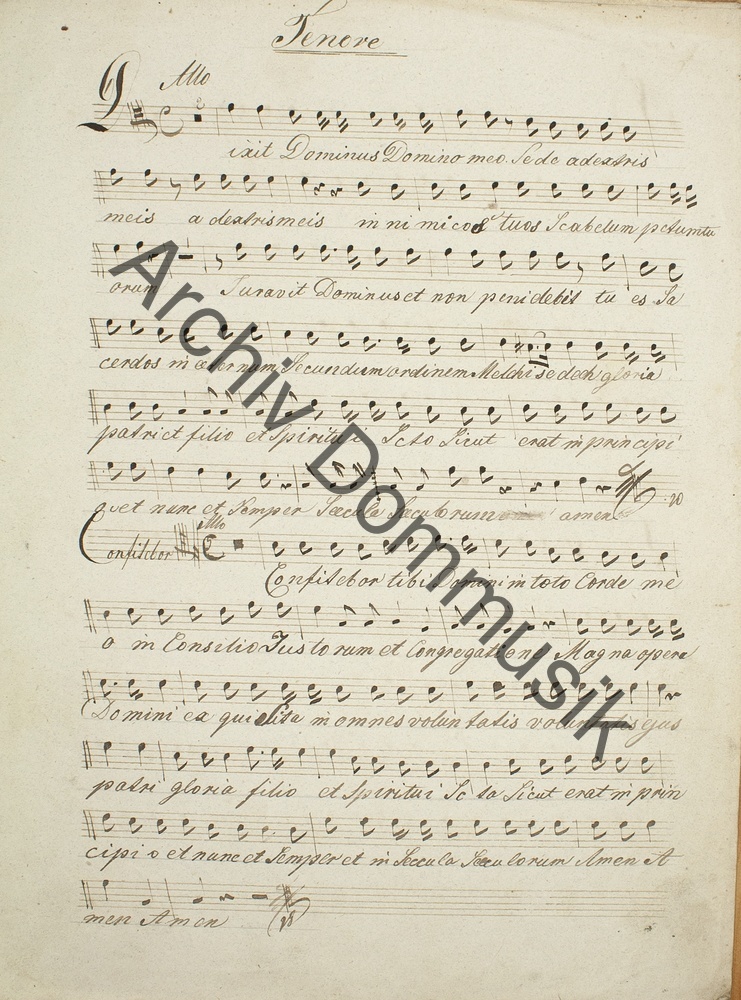 Tenore
Allo
Dixit Dominus Domino meo. Sede adextris
meis a dextris meis inimicos tuos Scabelum petum tu
orum Juravit Dominus et non penidebit tu es Sa
cerdos in eternum Secundum ordinem Melchisedech gloria
patri et filio et Spiritui Scto Sicut erat in principi
o et nunc et Semper Saecula Saeculorum amen
Allo
Confitebor
Confitebor tibi Domini in toto Corde me
o in Consilio Justorum et Congregatione Magna opera
Domini ex quisita in omnes voluntatis voluntatis ejus
patri gloria filio et Spiritui Scto Sicut erat in prin
cipi o et nunc et Semper et in Saecula Saeculorum Amen A
men Amen
Archiv Dommusik